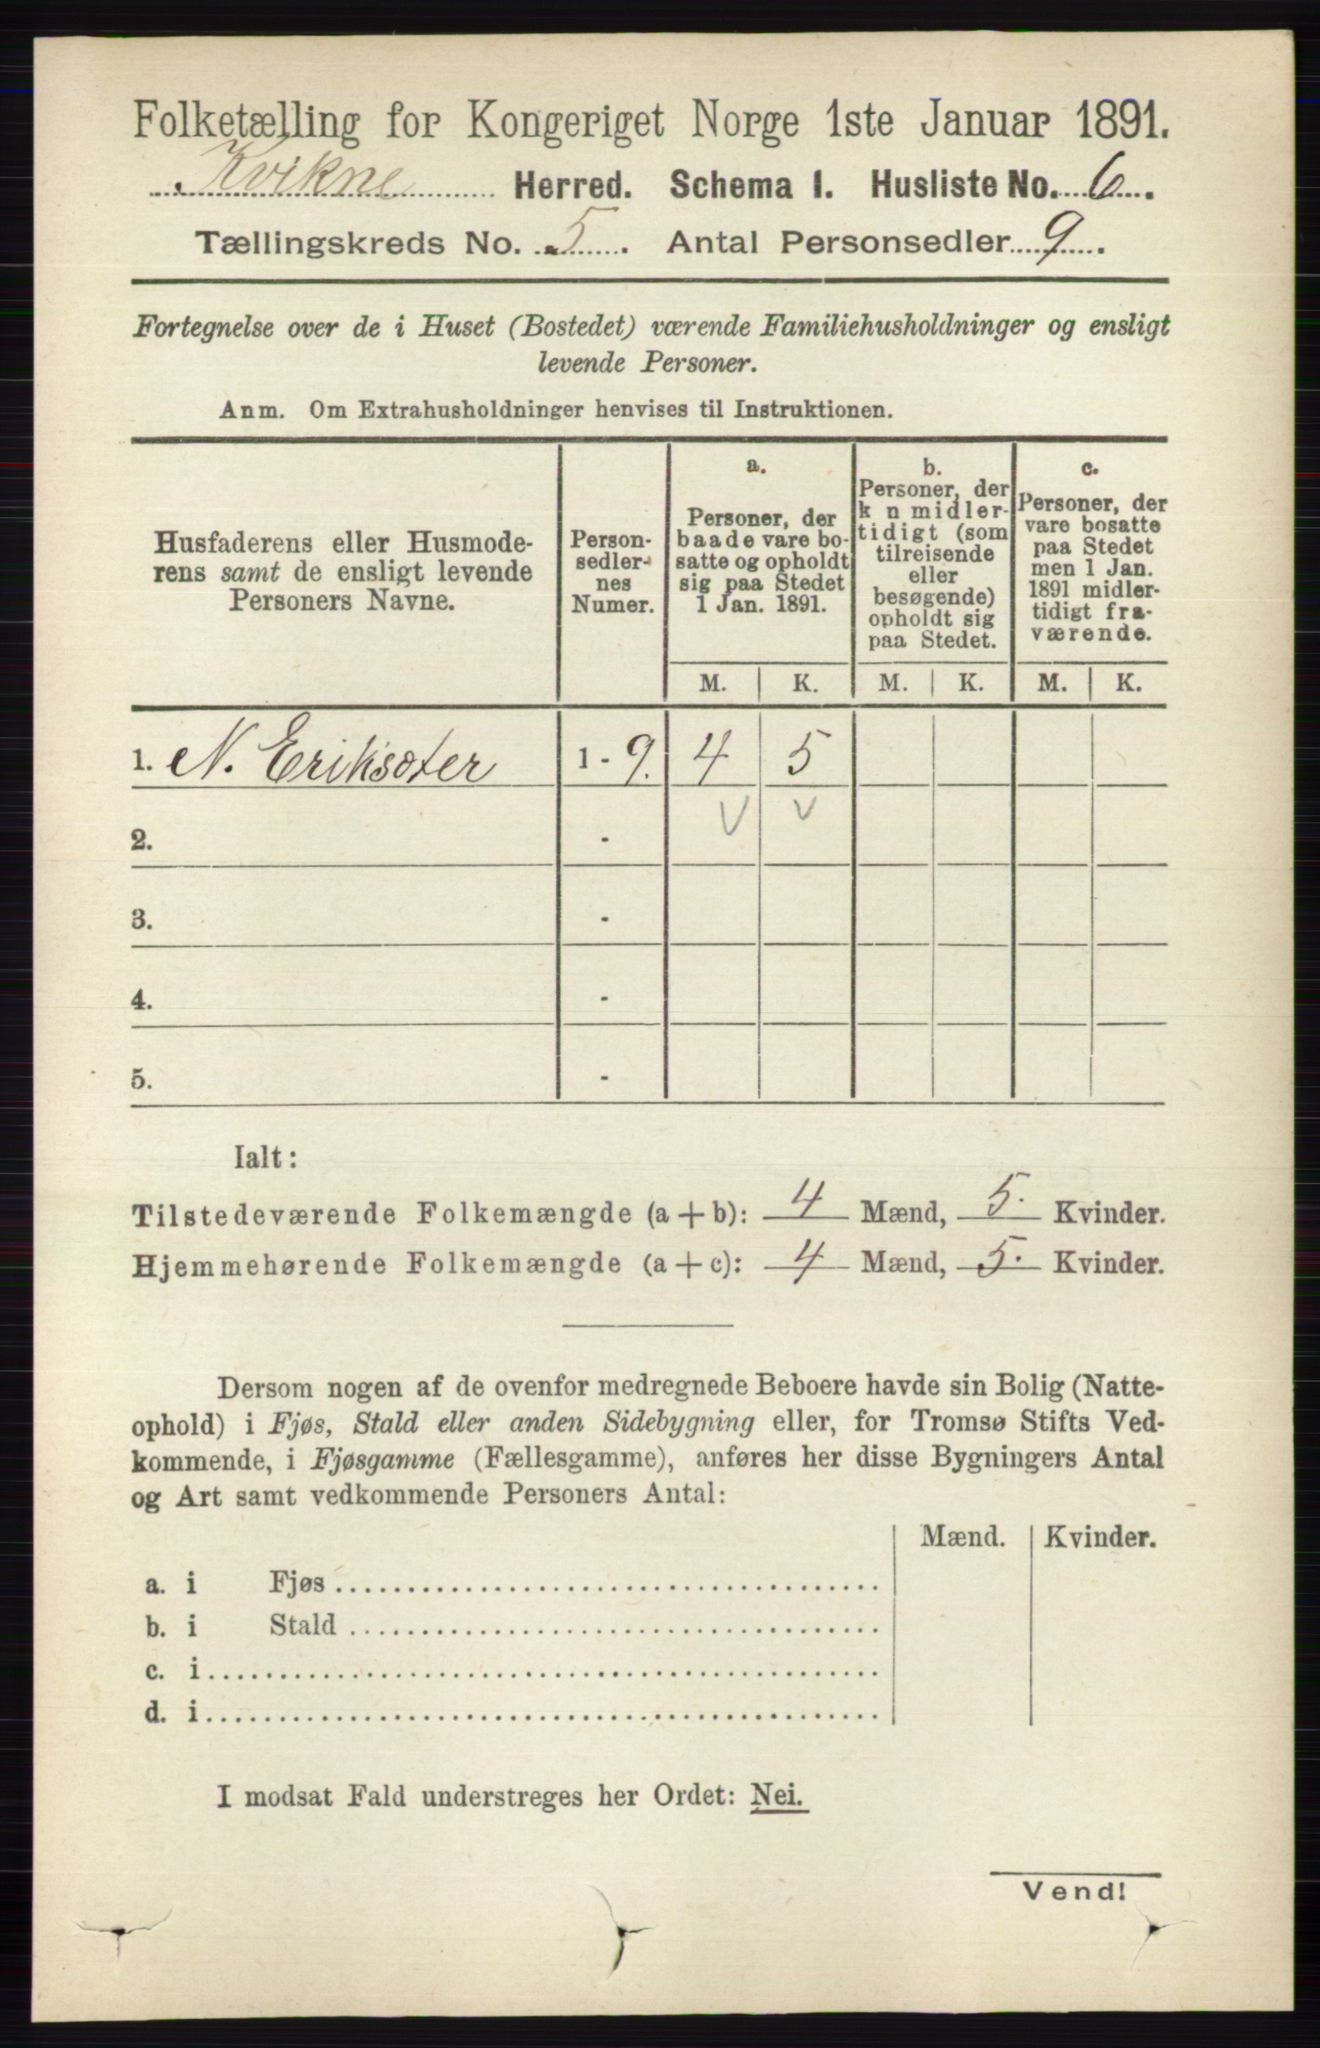 Folketælling for Kongeriget Norge 1ste Januar 1891.
Kvikne Herred. Schema 1. Husliste No. 6.
Tællingskreds No. 5. Antal Personsedler 9.
Fortegnelse over de i Huset (Bostedet) værende Familiehusholdninger og ensligt
levende Personer.
Anm. Om Extrahusholdninger henvises til Instruktionen.
Husfaderens eller Husmode-
rens samt de ensligt levende
Personers Navne.
Person-
sedler-
nes
Numer.
a.
Personer, der
baade vare bo-
satte og opholdt
sig paa Stedet
1 Jan. 1891.
b.
Personer, der
k n midler-
tidigt (som
tilreisende
eller
besøgende)
opholdt sig
paa Stedet.
c.
Personer, der
vare bosatte
paa Stedet
men 1 Jan.
1891 midler-
tidigt fra-
værende.
M. K. M. K. M. K.
1. N. Eriksøter 1 - 9. 4 5
2. - V V
3. -
4. -
5. -
Ialt:
Tilstedeværende Folkemængde (a + b): 4 Mænd, 5. Kvinder.
Hjemmehørende Folkemængde (a + c): 4 Mænd, 5. Kvinder.
Dersom nogen af de ovenfor medregnede Beboere havde sin Bolig (Natte-
ophold) i Fjøs, Stald eller anden Sidebygning eller, for Tromsø Stifts Ved-
kommende, i Fjøsgamme (Fællesgamme), anføres her disse Bygningers Antal
og Art samt vedkommende Personers Antal:
Mænd. Kvinder.
a. i Fjøs
b. i Stald
c. i
d. i
I modsat Fald understreges her Ordet: Nei.
Vend!